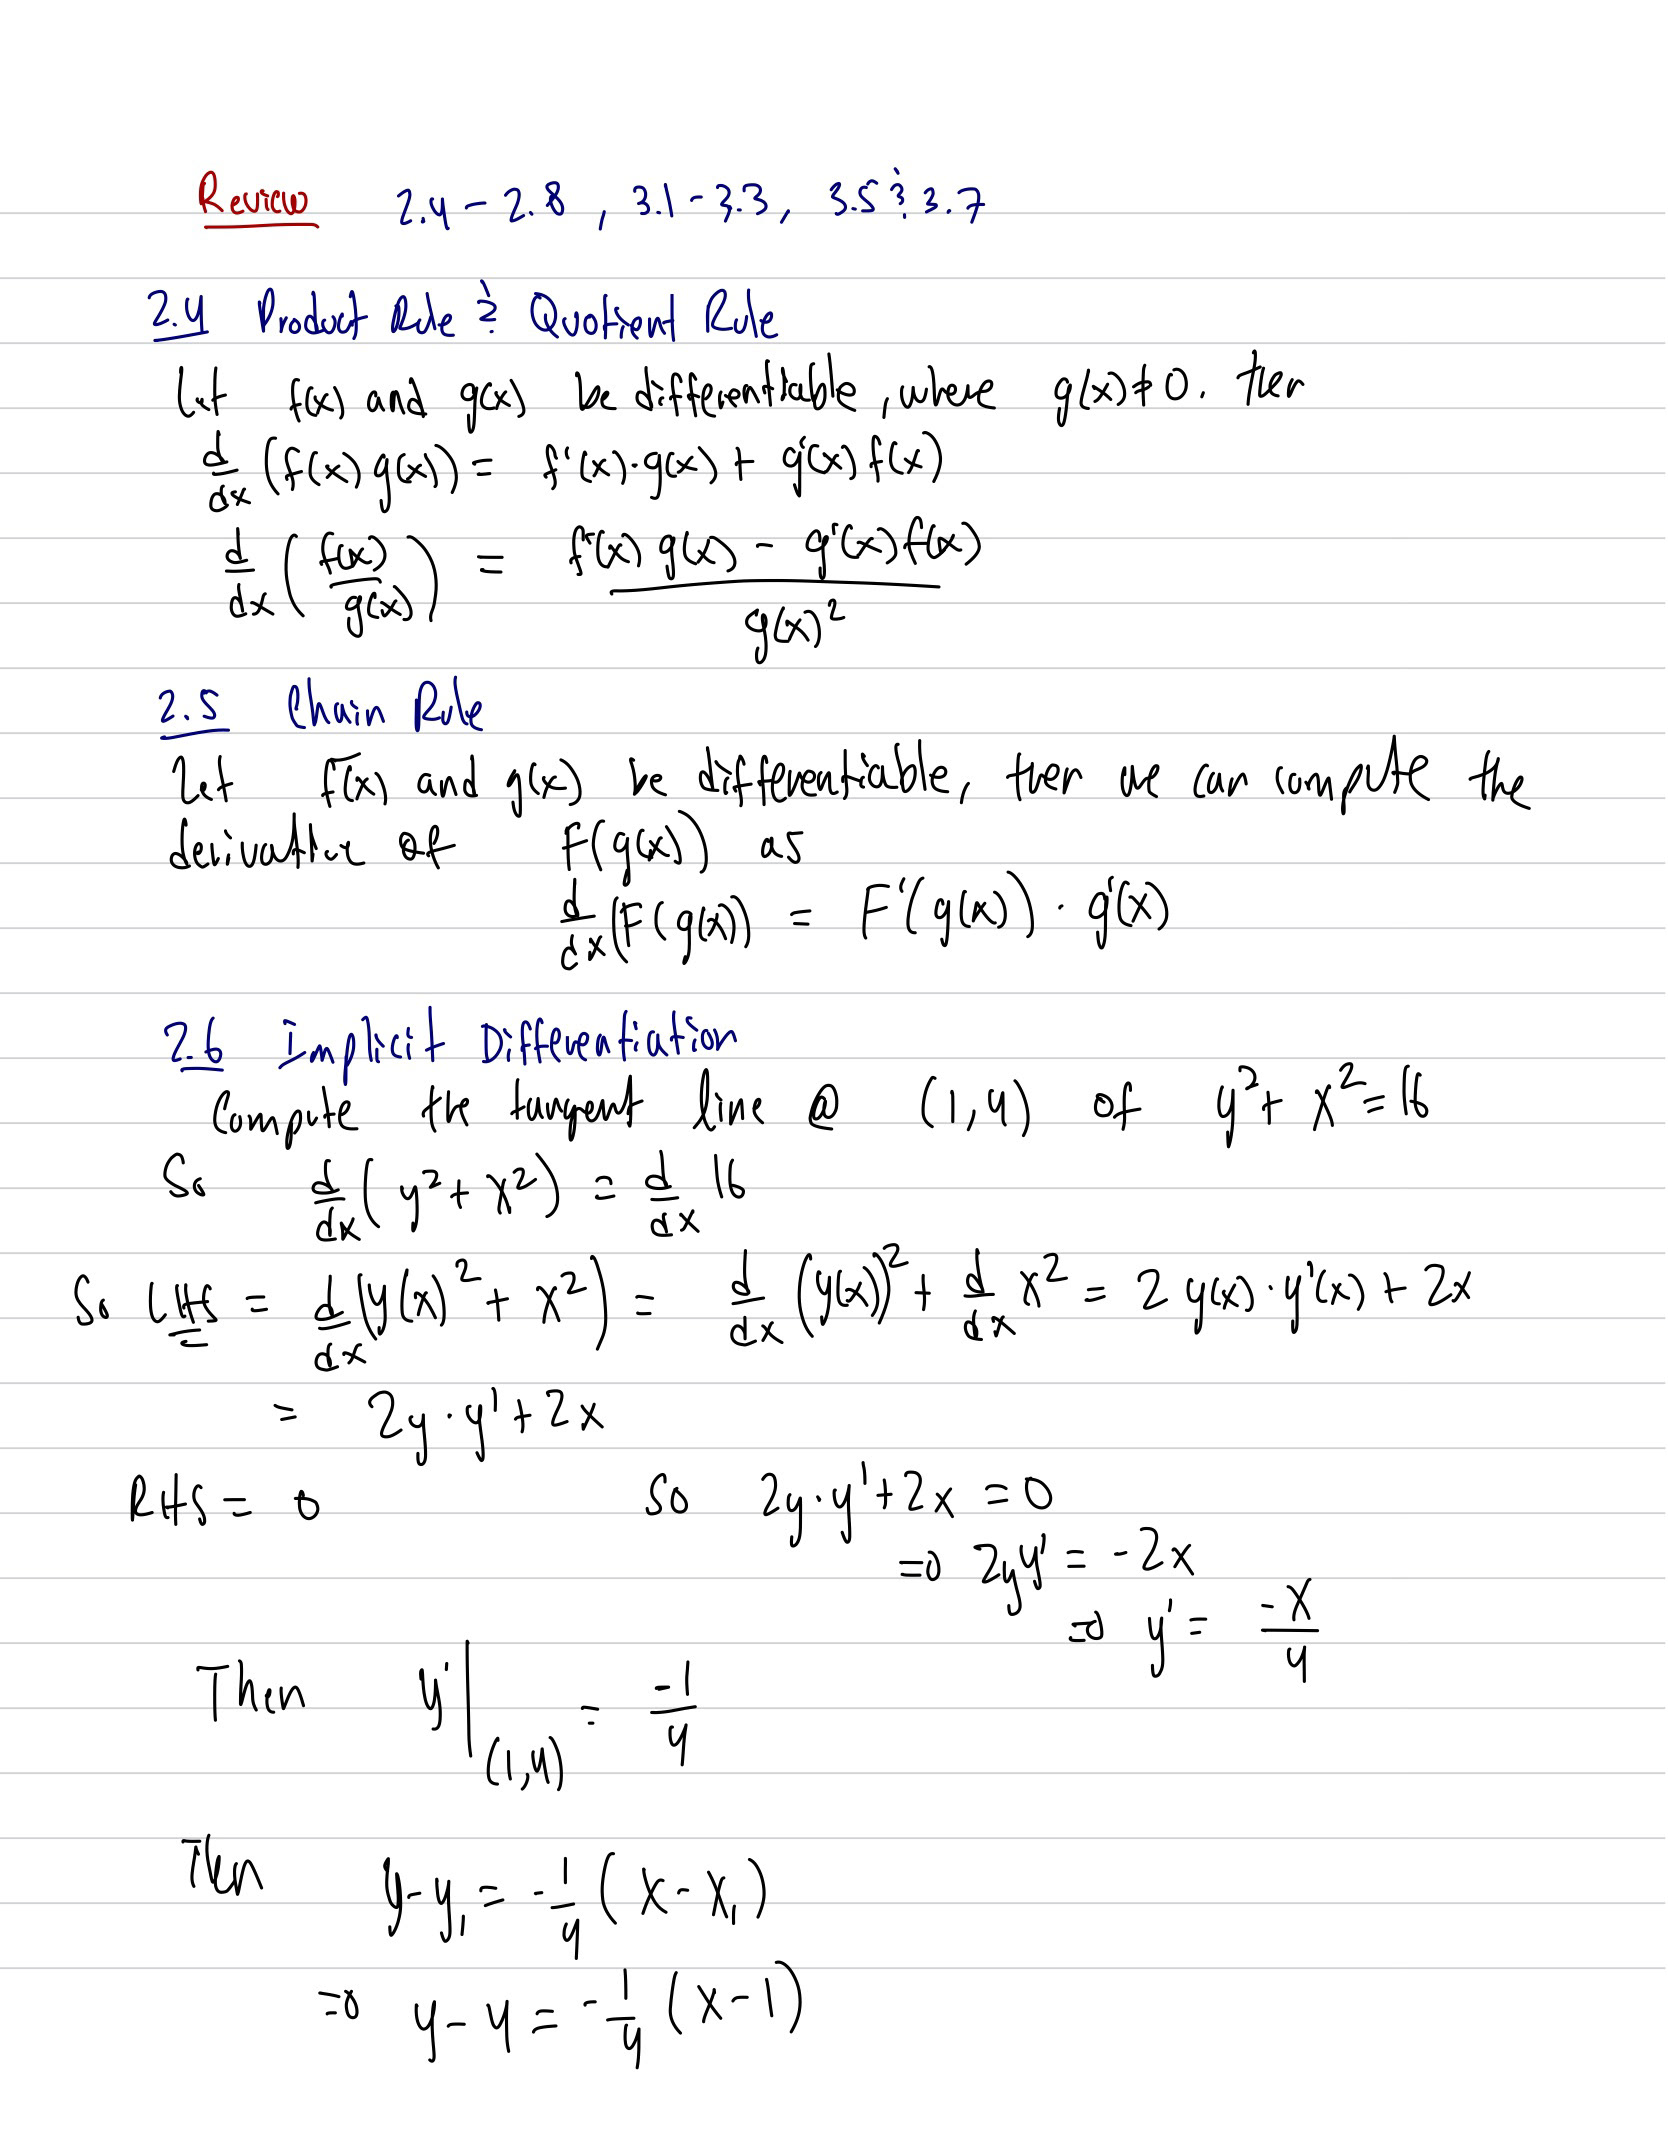 Review 2.4 - 2.8 , 3.1 - 3.3, 3.5 & 3.7
2.4 Product Rule & Quotient Rule
Let f(x) and g(x) be differentiable, where g(x) ≠ 0. then
d/dx (f(x) g(x)) = f'(x)·g(x) + g'(x) f(x)
d/dx ( f(x) / g(x) ) = ( f'(x) g(x) - g'(x) f(x) ) / g(x)²
2.5 Chain Rule
Let f(x) and g(x) be differentiable, then we can compute the
derivative of F(g(x)) as
d/dx (F(g(x)) = F'(g(x)) · g'(x)
2.6 Implicit Differentiation
Compute the tangent line @ (1,4) of y² + x² = 16
So d/dx ( y² + x² ) = d/dx 16
So LHS = d/dx (y(x)² + x²) = d/dx (y(x))² + d/dx x² = 2 y(x) · y'(x) + 2x
= 2y · y' + 2x
RHS = 0 so 2y · y' + 2x = 0
⇒ 2yy' = -2x
⇒ y' = -x/y
Then y' |(1,4) = -1/4
Then y - y₁ = -1/4 ( x - x₁ )
⇒ y - 4 = -1/4 (x - 1)